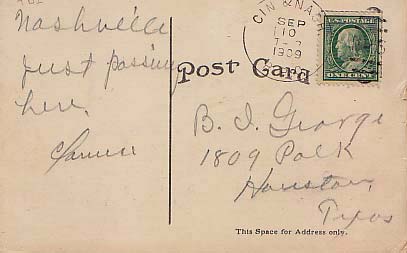 Nashville
Just passing
here.
SEP
10
1909
U.S. POSTAGE
ONE CENT
Post Card
B. I. George
1809 Polk
Houston,
Texas
This Space for Address only.